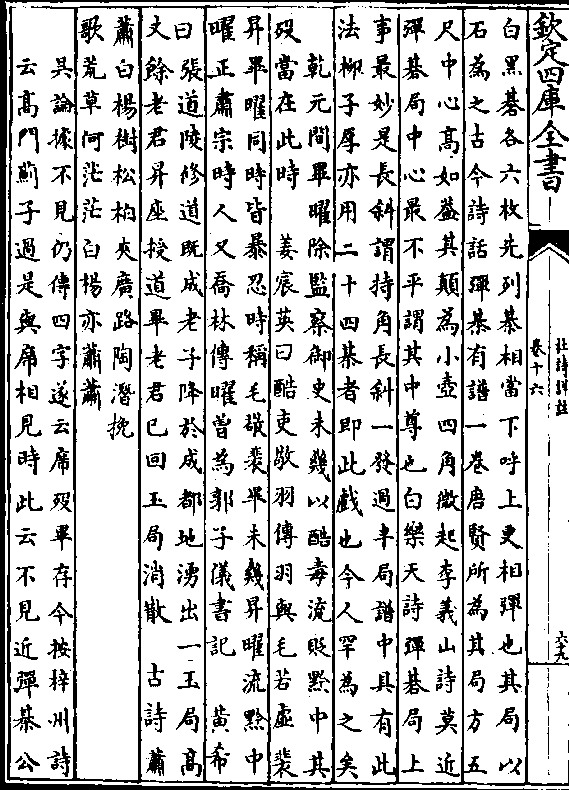 欽定四庫全書
杜詩詳註
卷十六
六十九
白黑棊各六枚先列棊相當下呼上更相彈也其局以
石為之古今詩話彈棊有譜一卷唐賢所為其局方五
尺中心高如蓋其顛為小壺四角微起李義山詩莫近
彈棊局中心最不平謂其中尊也白樂天詩彈棊局上
事最妙是長斜謂持角長斜一發過半局譜中具有此
法柳子厚亦用二十四棊者即此戲也今人罕為之矣
乾元間畢曜除監察御史未幾以酷毒流貶黔中其
歿當在此時　姜宸英曰酷吏敬羽傳羽與毛若虛裴
昇畢曜同時皆暴忍時稱毛敬裴畢未幾昇曜流黔中
曜正肅宗時人又喬林傳曜曾為郭子儀書記　黃希
曰張道陵修道既成老子降於成都地湧出一玉局高
丈餘老君昇座授道畢老君已回玉局消散　古詩蕭
蕭白楊樹松柏夾廣路陶潛挽
歌荒草何茫茫白楊亦蕭蕭
吳論據不見仍傳四字遂云席歿畢存今按梓州詩
云高門薊子過是與席相見時此云不見近彈棊公